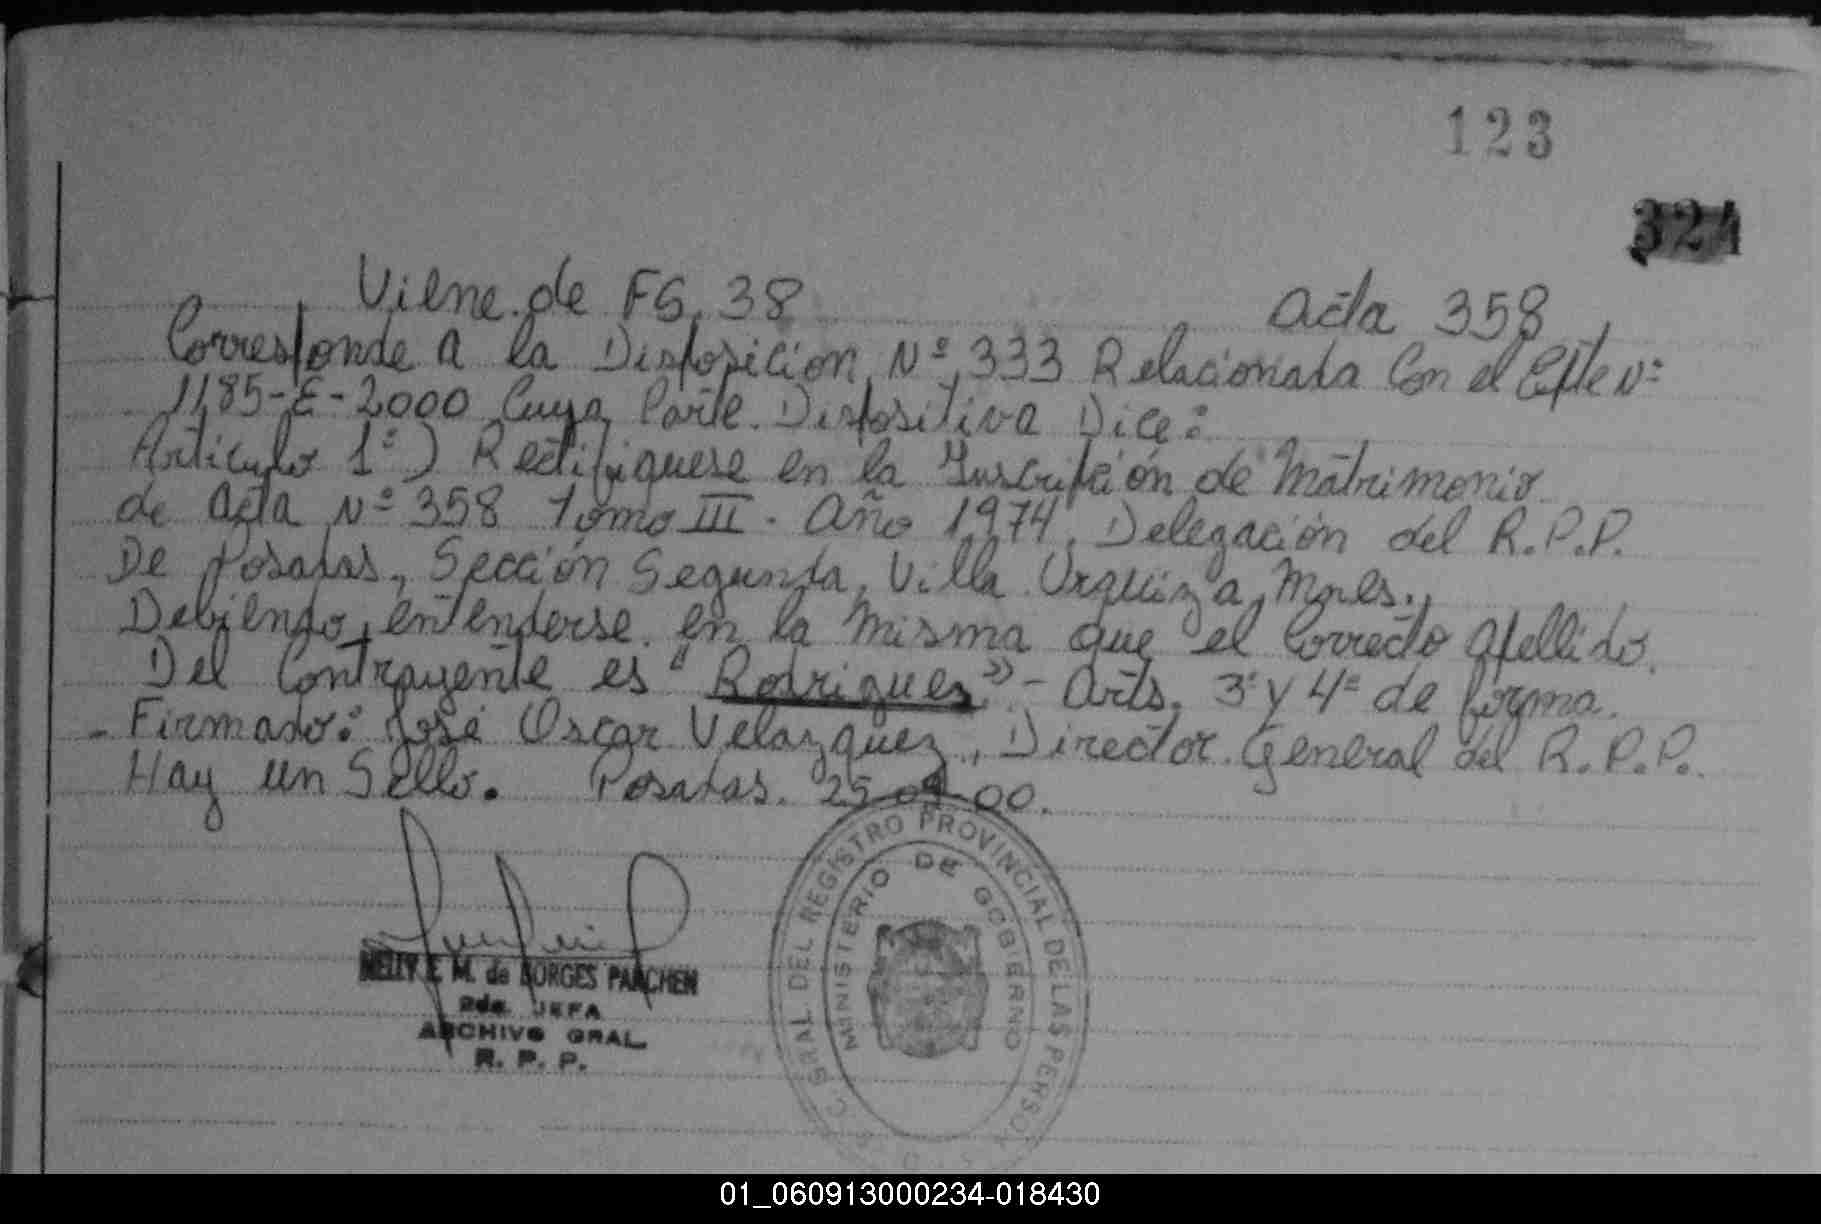 123
324
Viene de FS. 38 Acta 358
Corresponde a la Disposición Nº 333 Relacionada Con el Expte Nº
1185-E-2000 Cuya Parte Dispositiva Dice:
Artículo 1º) Rectifiquese en la Inscripción de Matrimonio
de Acta Nº 358 Tomo III. Año 1974, Delegación del R.P.P.
De Posadas, Sección Segunda, Villa Urquiza, Mnes.,
Debiendo entenderse en la misma que el Correcto Apellido
Del Contrayente es "Rodrigues" - Arts. 3º y 4º de forma.
- Firmado: José Oscar Velazquez, Director General del R.P.P.
Hay un Sello. Posadas. 25 09 00.
NELLY E. M. de BORGES PANCHEN
2da. JEFA
ARCHIVO GRAL.
R. P. P.
GRAL. DEL REGISTRO PROVINCIAL DE LAS PERSON
MINISTERIO DE GOBIERNO
01_060913000234-018430